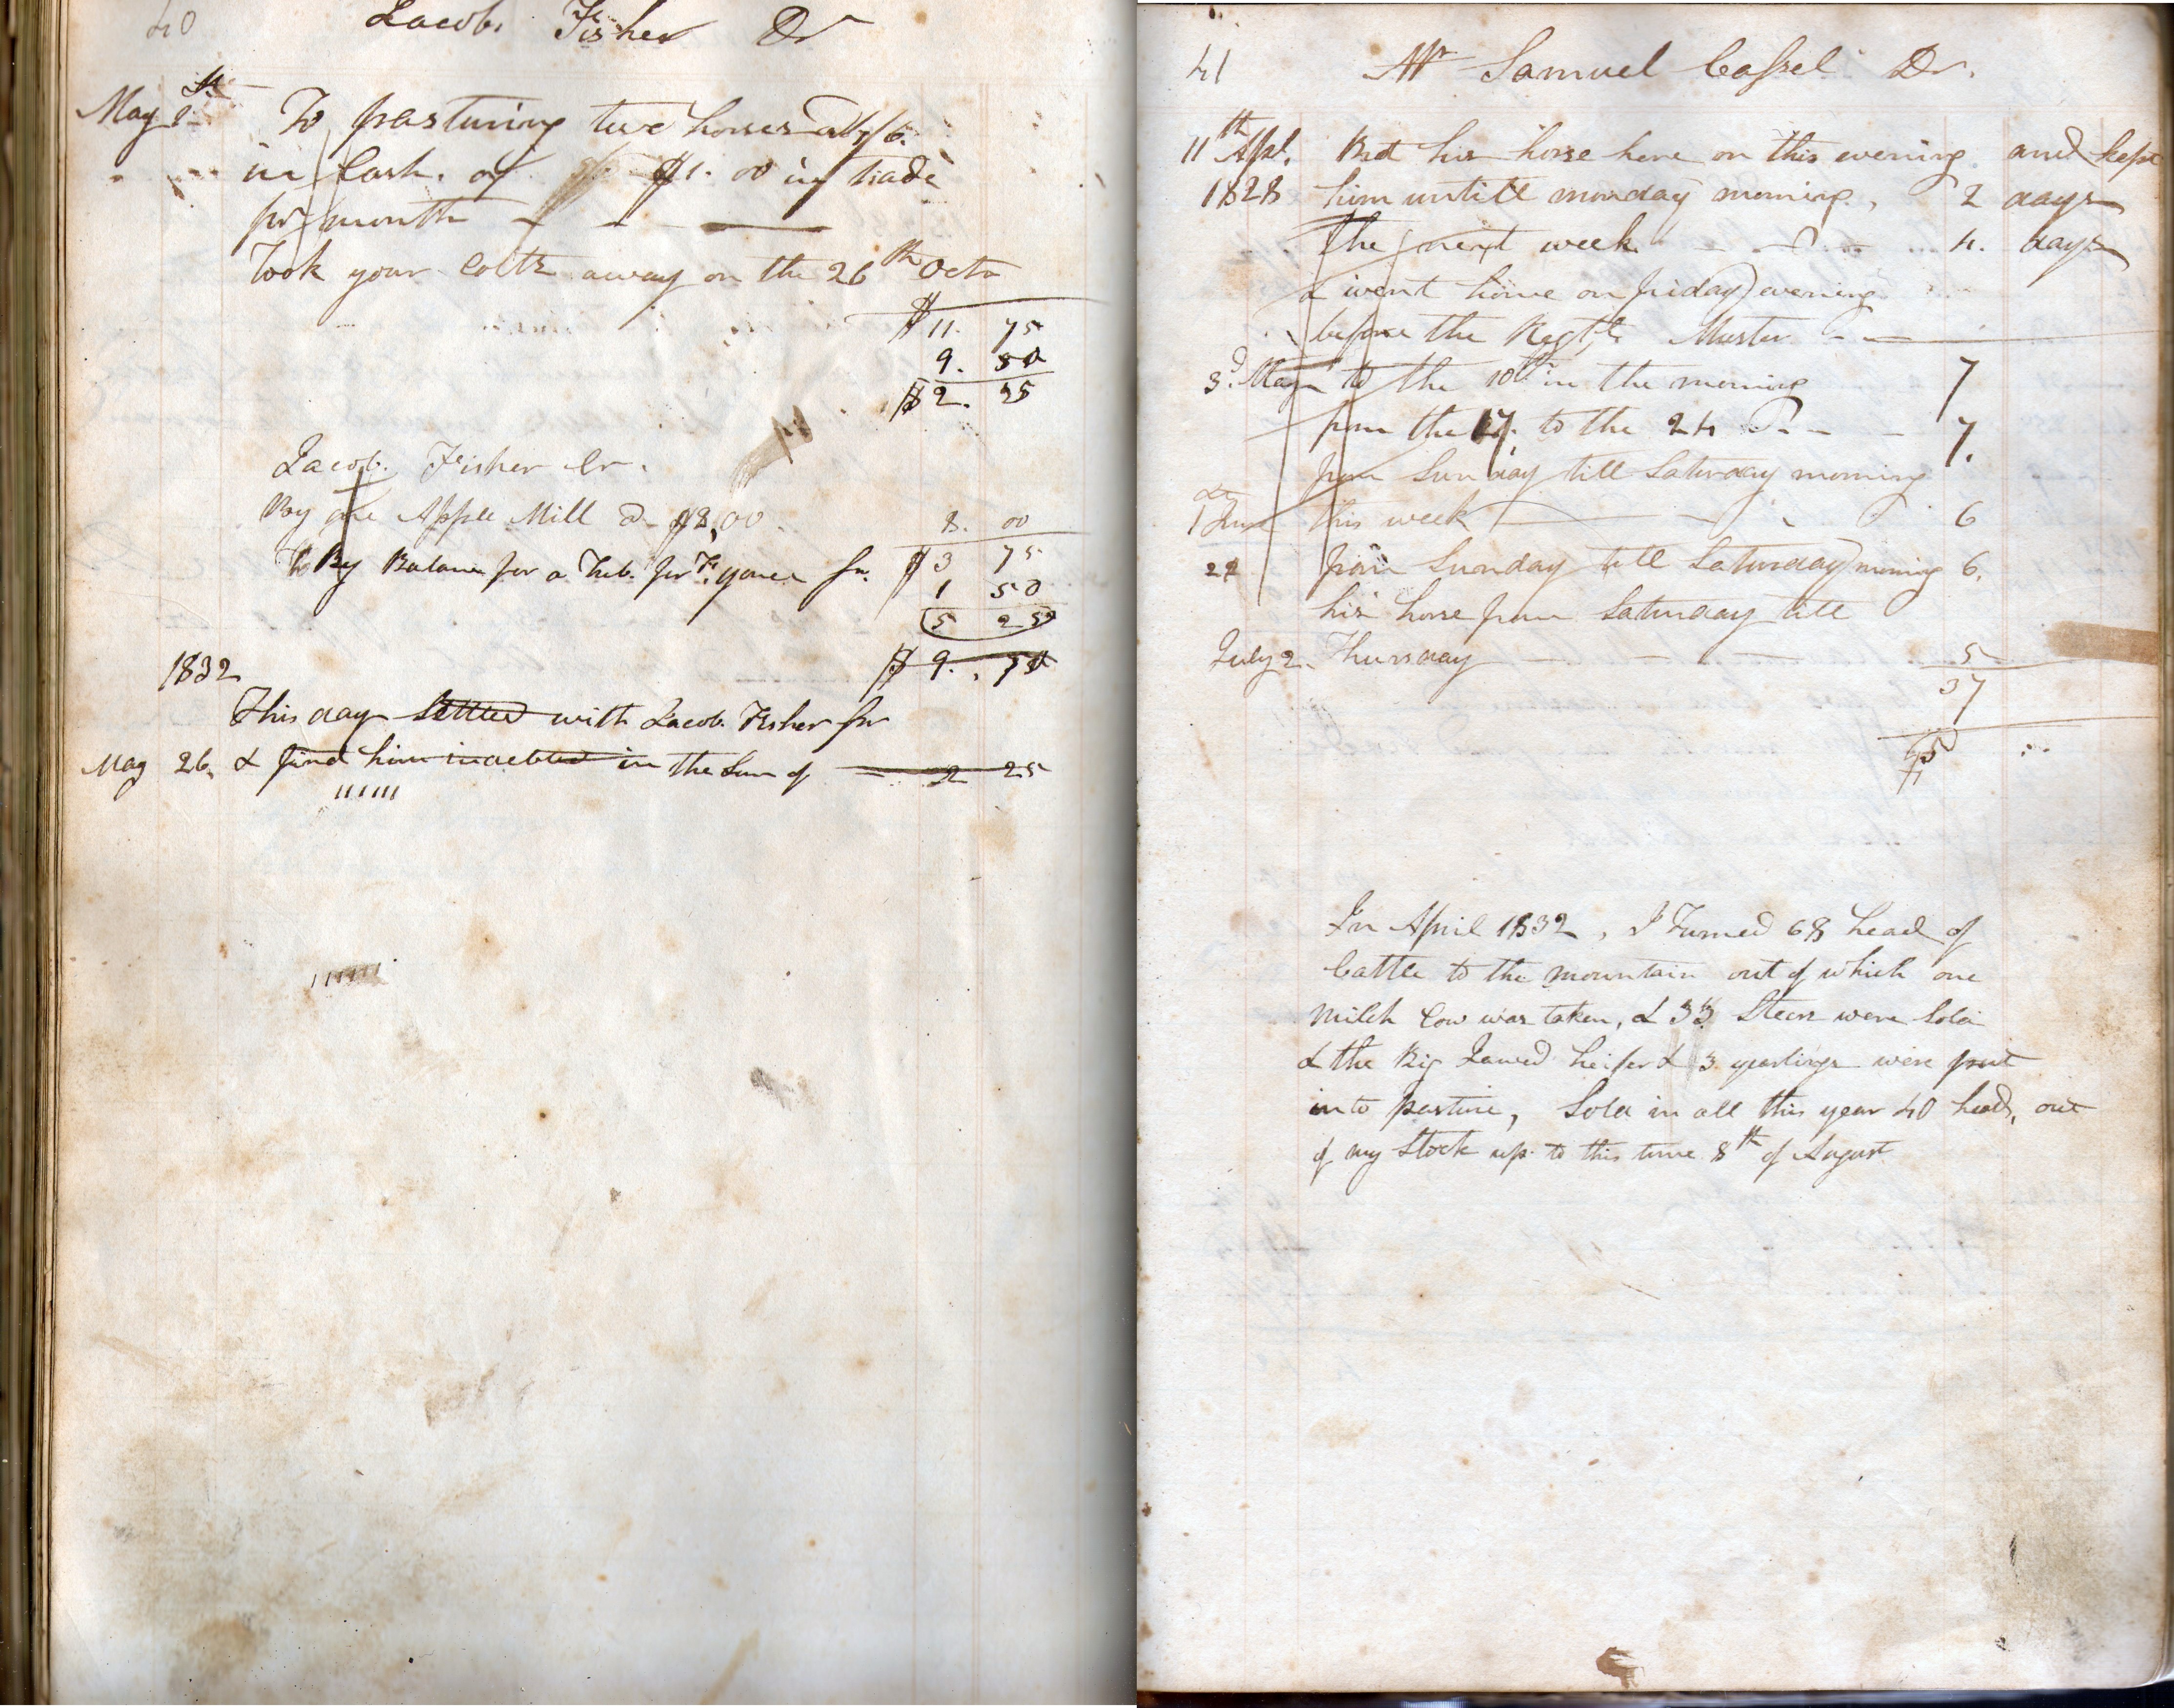 40 Jacob Fisher Dr
May 1st To pasturing two horses at 4/6
in Cash. or $1.00 in trade
pr month
Took your Colts away on the 26th Octr
$11. 75
9. 50
$2. 25
Jacob. Fisher Cr.
By one Apple Mill @ $8,00 8. 00
By Balance for a Tub. for $3 75
1 50
5 25
$9. 50
1832
This day Settled with Jacob. Fisher Snr
May 26. & find him indebted in the Sum of 2 25
41 Mr Samuel Cassel Dr.
11th Apl. But his horse here on this evening and kept
1828 him untill monday morning, 2 days
the next week 4. days
& went home on friday evening
before the Regtl Muster
3d. May to the 10th in the morning 7
from the 17. to the 24 Do 7.
from Sunday till Saturday morning
1 June this week 6
22 from Sunday till Saturday morning 6.
his horse from Saturday till
July 2. Thursday 5
37
In April 1832, I Turned 68 head of
Cattle to the mountain out of which one
milch Cow was taken, & 33 Steers were Sold
& the Big Jawed heifer & 3 yearlings were put
into pasture, Sold in all this year 40 head, out
of my Stock up to this time 8th of August